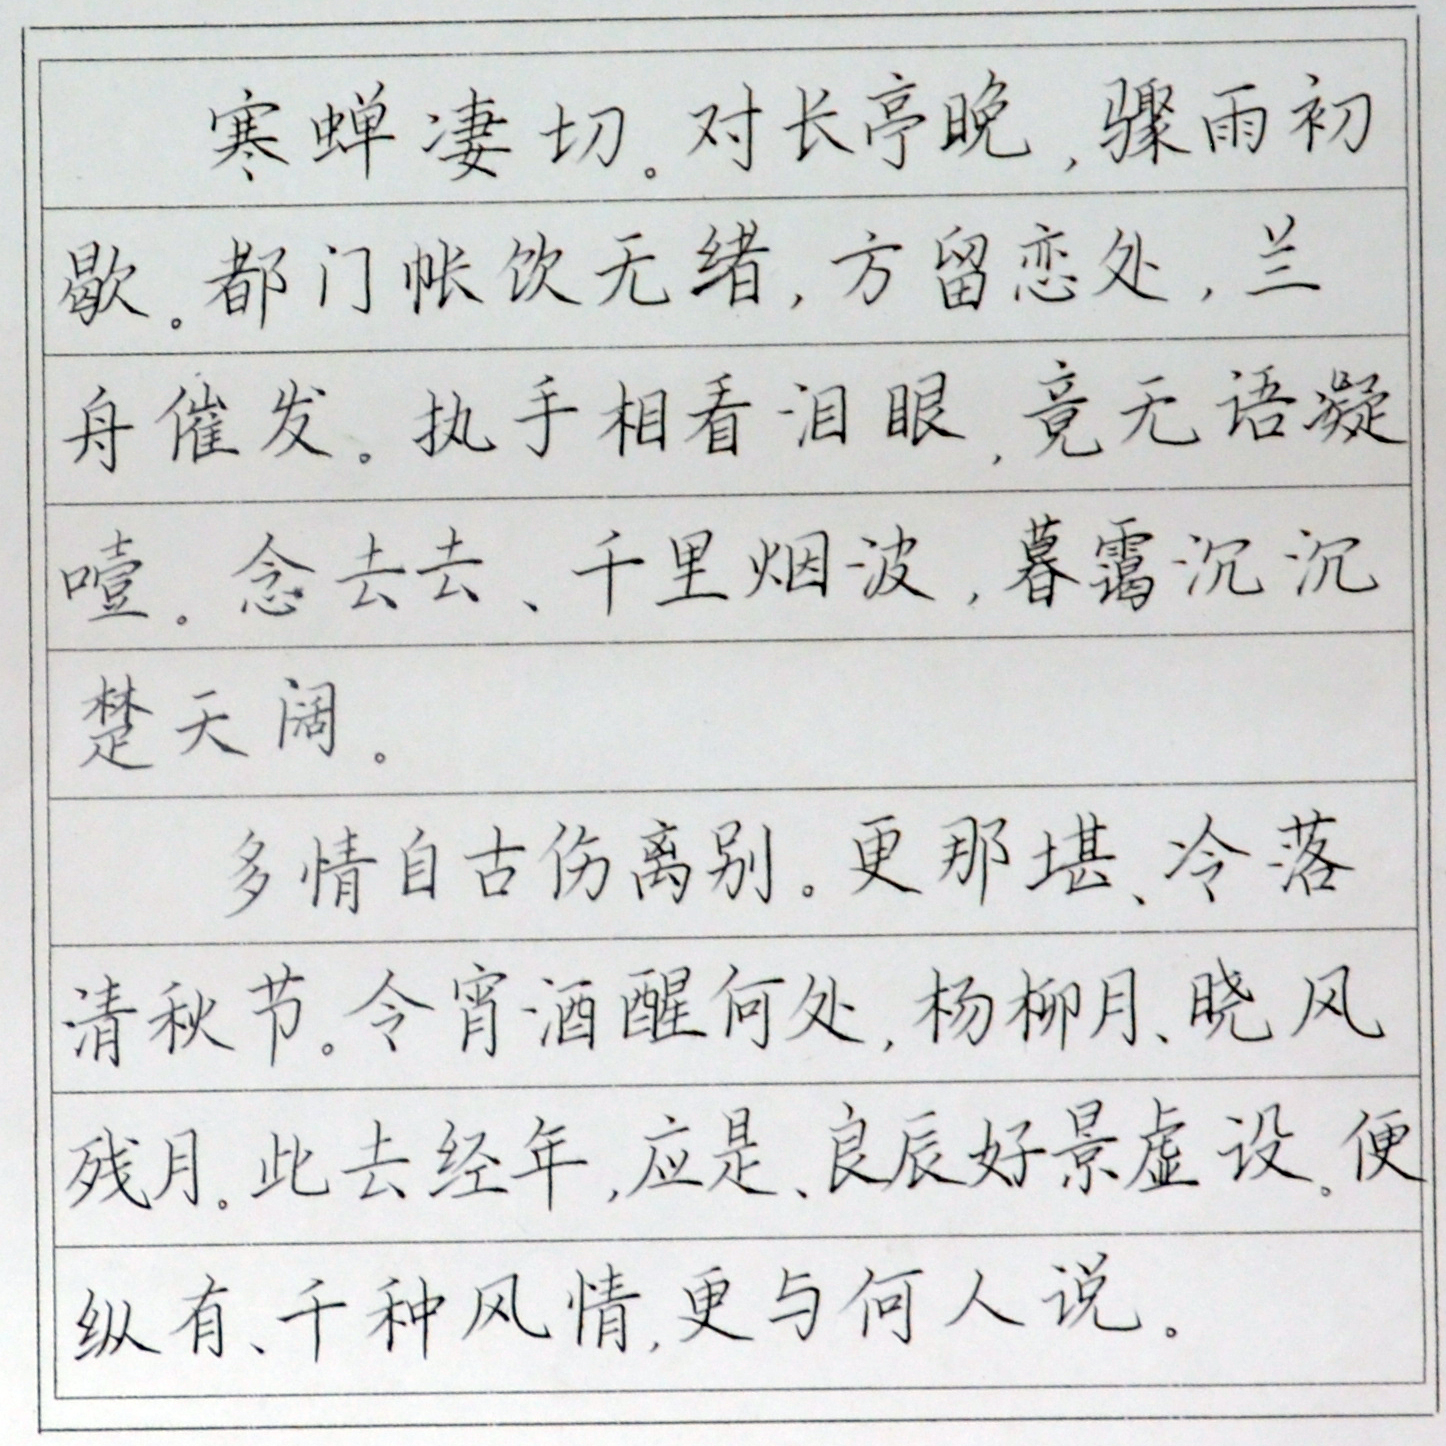 寒蝉凄切。对长亭晚，骤雨初
歇。都门帐饮无绪，方留恋处，兰
舟催发。执手相看泪眼，竟无语凝
噎。念去去、千里烟波，暮霭沉沉
楚天阔。
多情自古伤离别。更那堪、冷落
清秋节。今宵酒醒何处，杨柳月、晓风
残月。此去经年，应是、良辰好景虚设。便
纵有、千种风情，更与何人说。